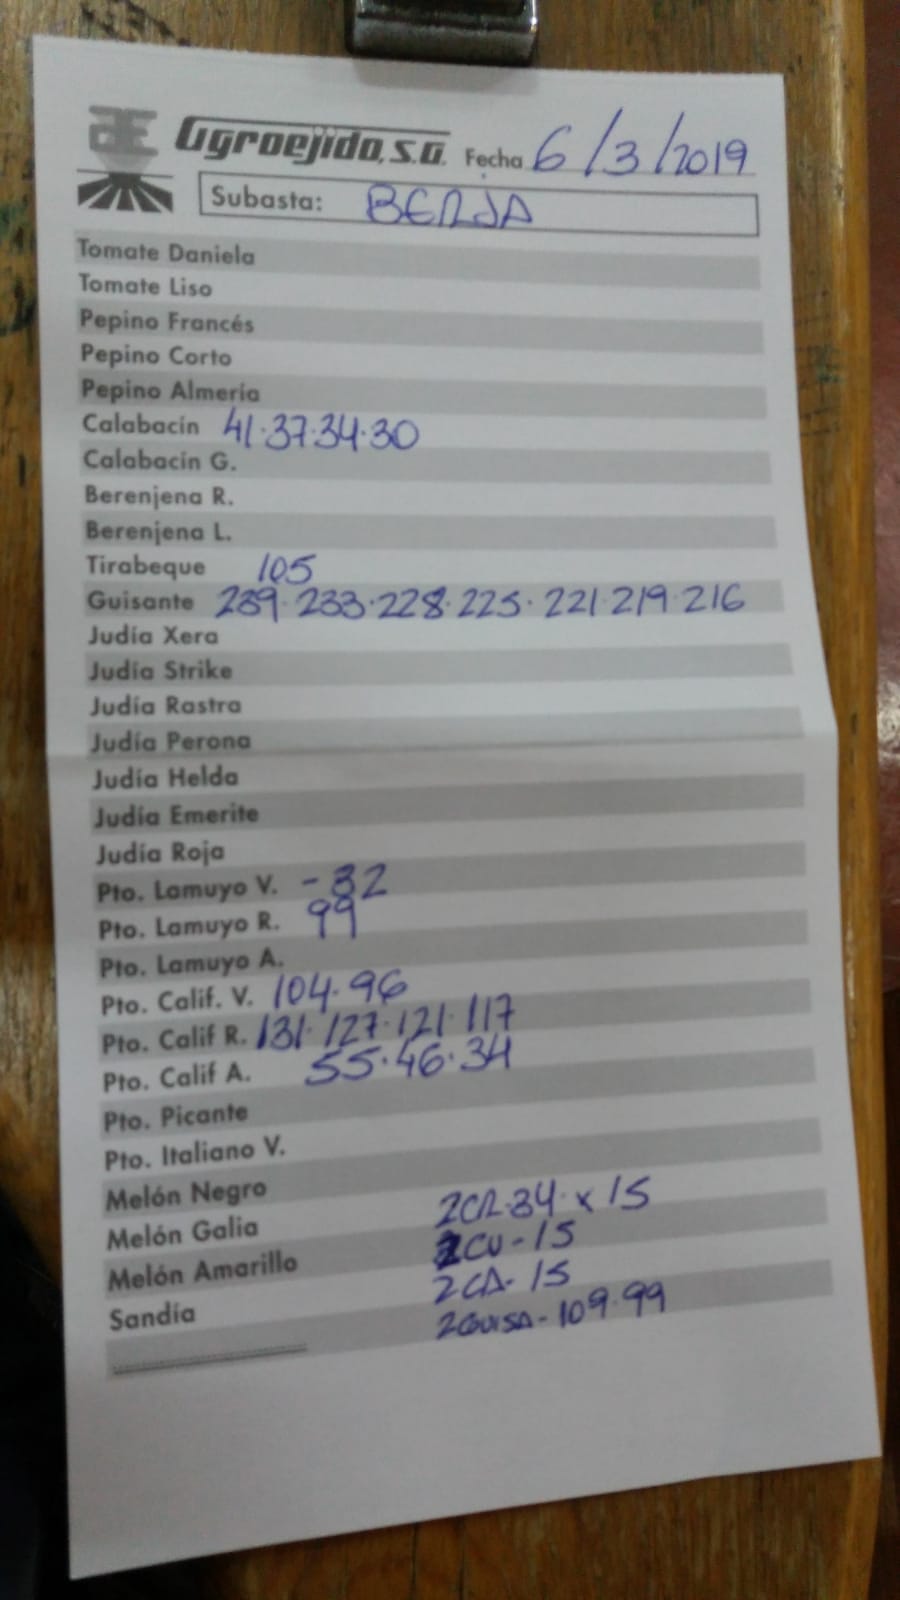 Agroejido, S.A. Fecha 6/3/2019
Subasta: BERJA
Tomate Daniela
Tomate Liso
Pepino Francés
Pepino Corto
Pepino Almería
Calabacín 41·37·34·30
Calabacín G.
Berenjena R.
Berenjena L.
Tirabeque 105
Guisante 239·233·228·225·221·219·216
Judía Xera
Judía Strike
Judía Rastra
Judía Perona
Judía Helda
Judía Emerite
Judía Roja
Pto. Lamuyo V. -82
Pto. Lamuyo R. 99
Pto. Lamuyo A.
Pto. Calif. V. 104·96
Pto. Calif R. 131·127·121·117
Pto. Calif A. 55·46·34
Pto. Picante
Pto. Italiano V.
Melón Negro
Melón Galia 2CR·34·x 15
Melón Amarillo 2CV-15
Sandía 2CA-15
2GUISA-109·99